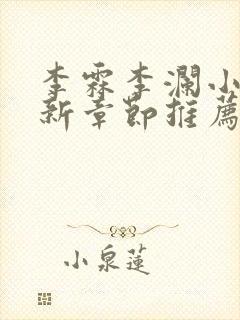 李霖李瀾小
新章節推薦
小泉蓮